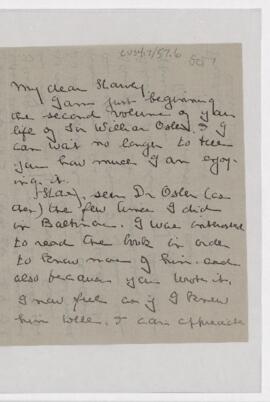 My dear Harvey,
I am just beginning
the second volume of your
life of Sir William Osler, & I
can wait no longer to tell
you how much I am enjoy-
ing it.
seen Dr Osler (as
the few times I did
in Baltimore. I was interested
to read the book in order
to know more of him. and
also because you wrote it.
I now feel as if I knew
him well, & can appreciate